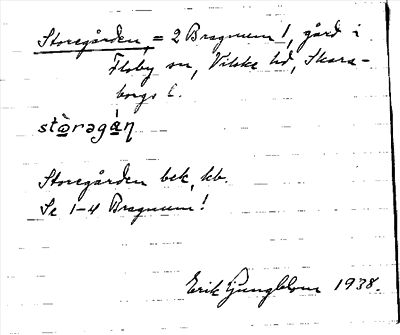 Storegården, = 2 Bragnum 1, gård i
Floby sn, Vilske hd, Skara-
borgs l.
stòragán
Storegården bek, kb.
Se 1-4 Bragnum!
Erik Ljungblom 1938.